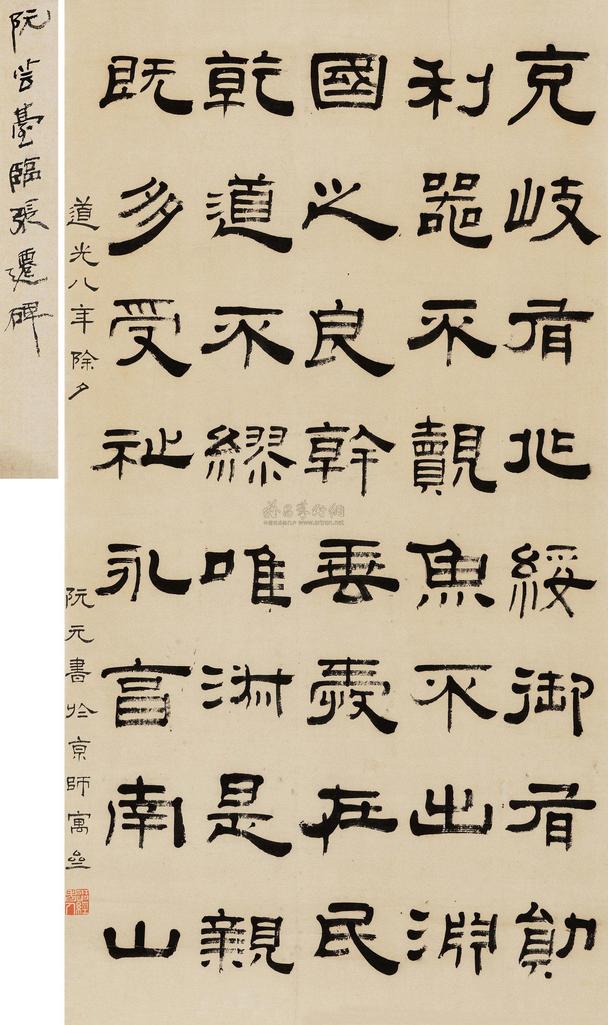 克岐有兆綏御有勛
利器不覿魚不出淵
國之良幹垂愛在民
乾道不繆唯淑是親
既多受祉永享南山
道光八年除夕
阮元書於京師寓齋
阮芸臺臨張遷碑
雅昌藝術網
www.artron.net